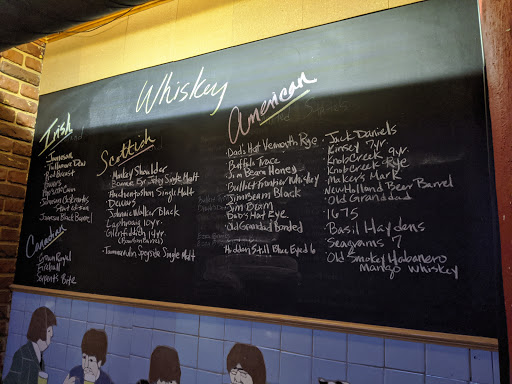 Whiskey
Irish
Jameson
Tullamore Dew
Red Breast
Powers
Jameson Black Barrel
Canadian
Crown Royal
Fireball
Serpents Bite
Scottish
Monkey Shoulder
Bowmore 15yr Islay Single Malt
Bruichladdich Single Malt
Dewars
Johnnie Walker Black
Laphroaig 10yr.
Glenfiddich 14yr.
(Bourbon Barrel)
Tamnavulin Speyside Single Malt
American
Dads Hat Vermouth Rye
Buffalo Trace
Jim Beam Honey
Bulleit Frontier Whiskey
Jim Beam Black
Jim Beam
Dads Hat Rye
Old Grandad Bonded
Hidden Still Blue Eyed 6
Jack Daniels
Kinsey 7yr.
Knob Creek 9yr.
Knob Creek Rye
Makers Mark
New Holland Beer Barrel
Old Granddad
1675
Basil Haydens
Seagrams 7
Old Smokey Habanero
Mango Whiskey